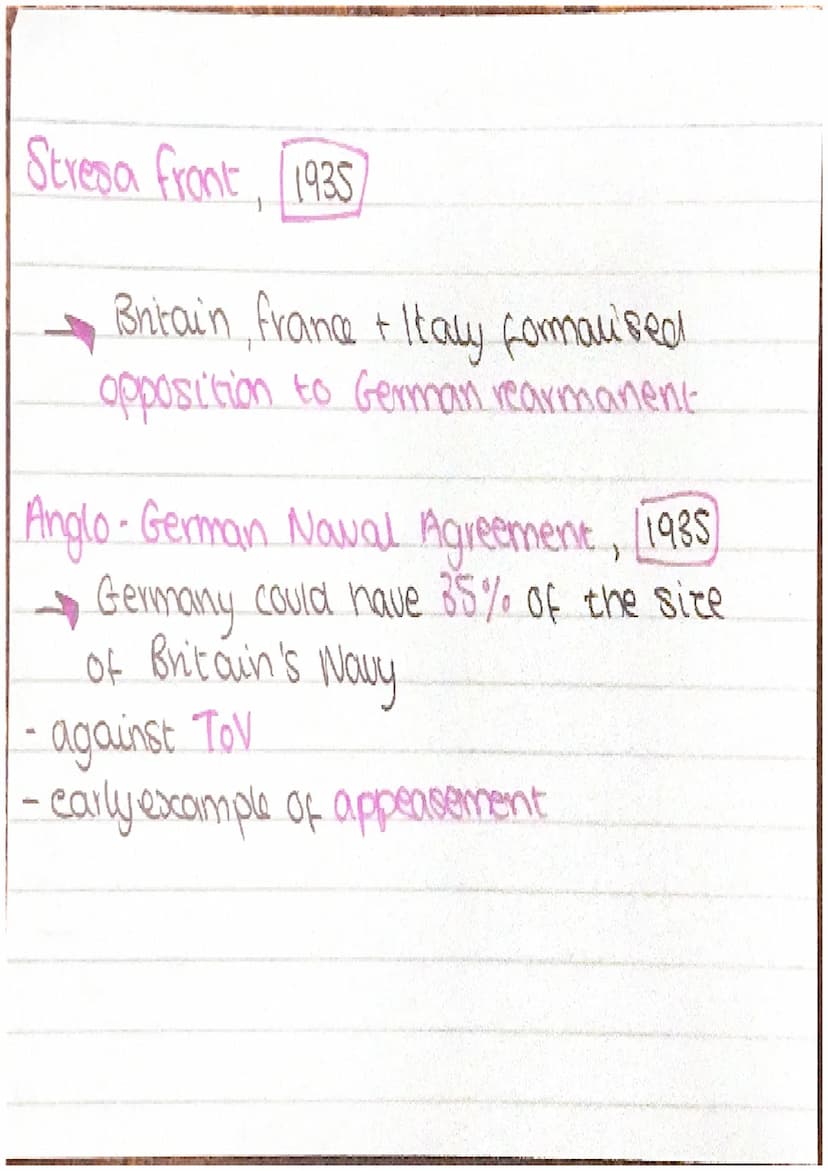 Stresa front, 1935
→ Britain, france + Italy formalised
opposition to German rearmanent
Anglo-German Naval Agreement, 1935
→ Germany could have 35% of the size
of Britain's Navy
- against ToV
- early example of appeasement